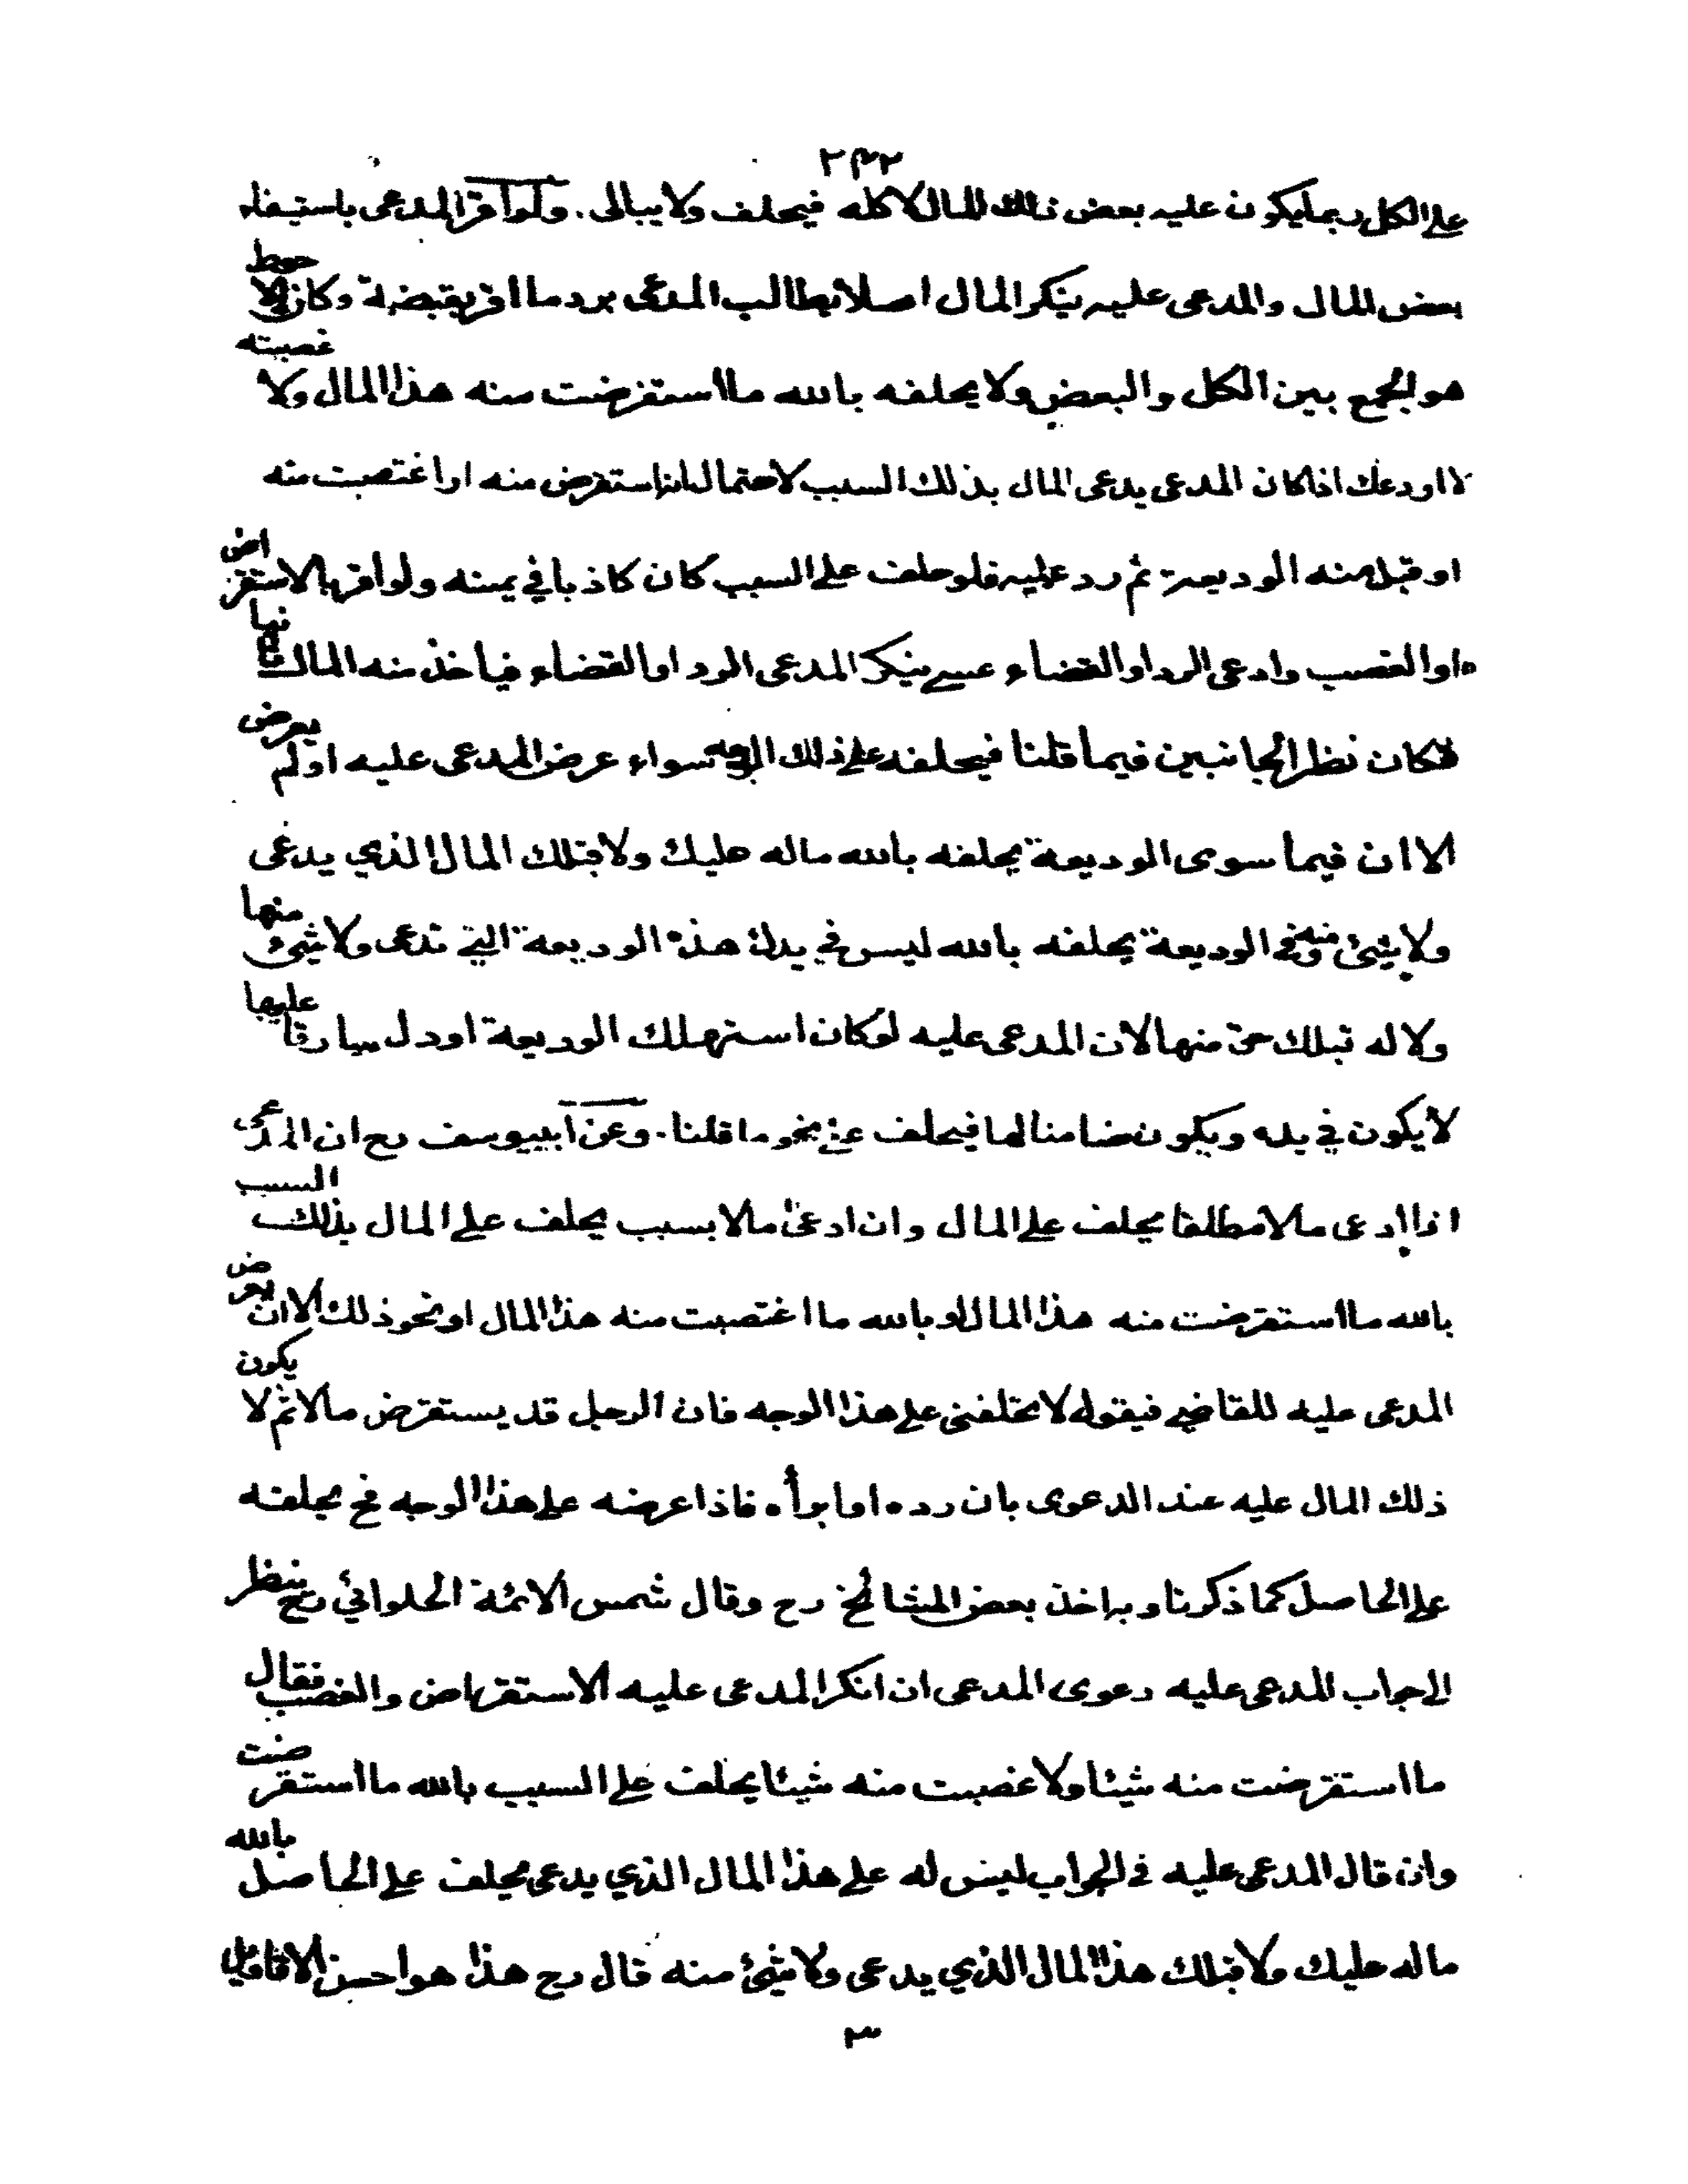 ٢٣٢
على الكل ربما يكون عليه بعض ذلك المال لا كله فيحلف ولا يبالى. ولو اقر المدعى باستيفاء
بعض المال والمدعى عليه ينكر المال اصلا يطالب المدعى برد ما اقر بقبضه وكان الاحوط
هو الجمع بين الكل والبعض ولا يحلفه بالله ما استقرضت منه هذا المال ولا غصبته
لا اودعك اذا كان المدعى يدعى المال بذلك السبب لاحتمال انه استقرض منه او اغتصبت منه
او قبل منه الوديعة ثم رد عليه فلو حلف على السبب كان كاذبا في يمينه ولو اقر بالاستقراض
او الغصب وادعى الرد او القضاء عسى ينكر المدعى الرد او القضاء فياخذ منه المال ثانيا
فكان نظر الجانبين فيما قلنا فيحلفه على ذلك الوجه سواء عرض المدعى عليه او لم يعرض
الا ان فيما سوى الوديعة يحلفه بالله ماله عليك ولا قبلك المال الذي يدعى
ولا شئ منه وفي الوديعة يحلفه بالله ليس في يدك هذه الوديعة التي تدعى ولا شئ منها
ولا له قبلك حق منها لان المدعى عليه لو كان استهلك الوديعة او دل سارقا عليها
لا يكون في يده ويكون ضامنا لها فيحلف على نحو ما قلنا. وعن ابييوسف رح ان المدعى
اذا ادعى مالا مطلقا يحلف على المال وان ادعى مالا بسبب يحلف على المال بذلك السبب
بالله ما استقرضت منه هذا المال او بالله ما اغتصبت منه هذا المال او نحو ذلك الا ان يعرض
المدعى عليه للقاضي فيقول لا تحلفنى على هذا الوجه فان الرجل قد يستقرض مالا ثم لا يكون
ذلك المال عليه عند الدعوى بان رده او ابرأه فاذا عرضه على هذا الوجه فح يحلفه
على الحاصل كما ذكرنا وبه اخذ بعض المشائخ رح وقال شمس الائمة الحلوائي رح ينظر
الى جواب المدعى عليه دعوى المدعى ان انكر المدعى عليه الاستقراض والغصب فقال
ما استقرضت منه شيئا ولا غصبت منه شيئا يحلف على السبب بالله ما استقرضت
وان قال المدعى عليه فى الجواب ليس له على هذا المال الذي يدعى يحلف على الحاصل بالله
ماله عليك ولا قبلك هذا المال الذي يدعى ولا شئ منه قال رح هذا هو احسن الاقاويل
٣